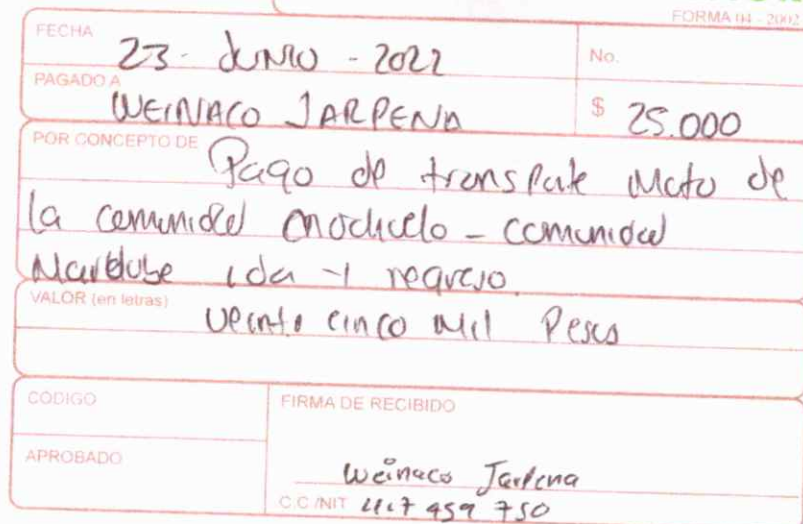 FORMA 04 - 2002
FECHA 23 - JUNIO - 2022
No.
PAGADO A WEINACO JARPENA
$ 25.000
POR CONCEPTO DE Pago de transpate Moto de
la comunidad - comunidad
ida -1 regreso
VALOR (en letras) veinte cinco Mil Pesos
CODIGO
FIRMA DE RECIBIDO
APROBADO
Weinaco Jarpena
C.C./NIT 459 750